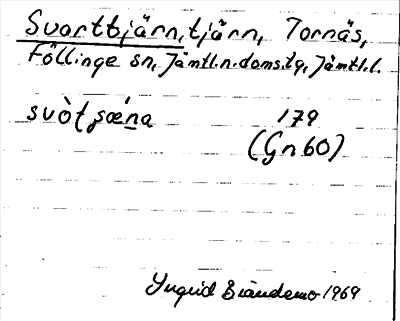 Svarttjärn, tjärn, Tornäs,
Föllinge sn, Jämtl.n.doms.tg, Jämtl.l.
svòtʂæ´na 179
(Gn 60)
Yngvid Brändemo 1969